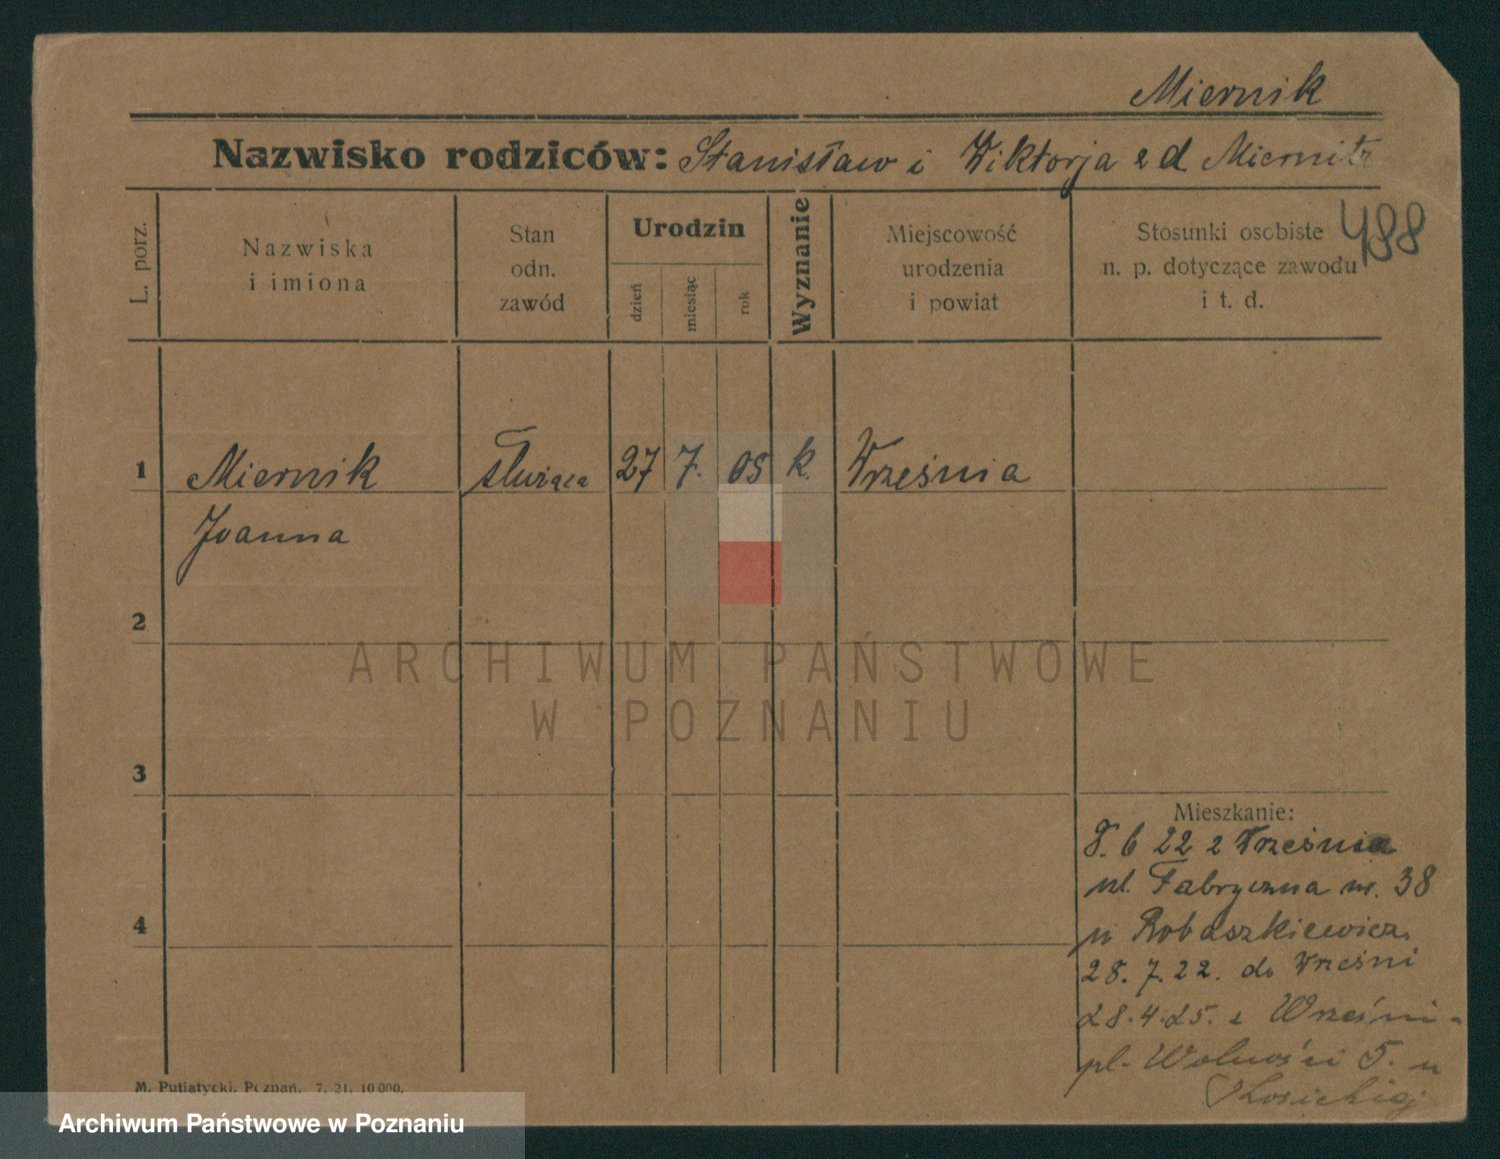 Miernik
Nazwisko rodziców: Stanisław i Wiktorja z d Miernik
488
L. porz.
Nazwiska
i imiona
Stan
odn.
zawód
Urodzin
dzień
miesiąc
rok
Wyznanie
Miejscowość
urodzenia
i powiat
Stosunki osobiste
n. p. dotyczące zawodu
i t. d.
1 Miernik służąca 27 7. 05 k. Września
Joanna
2
3
4
ARCHIWUM PAŃSTWOWE
W POZNANIU
Mieszkanie:
8. 6 22 z Września
ul. Fabryczna nr. 38
u Robaszkiewicz.
28. 7. 22. do Wrześni
28. 4. 25. z Wrześni -
pl. Wolności 5. u
M. Putiatycki, Poznań. 7. 21. 10 000.
Archiwum Państwowe w Poznaniu